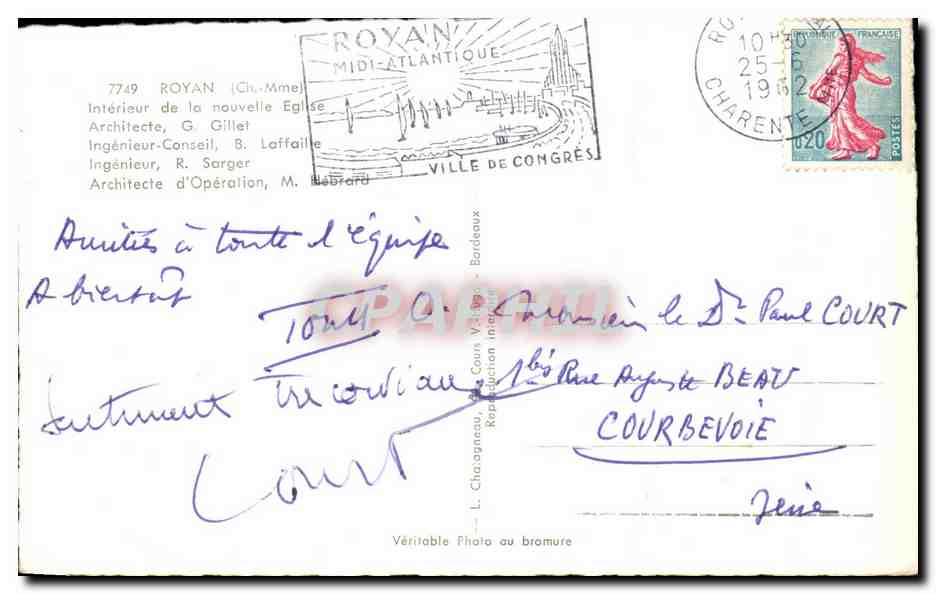 ROYAN
MIDI-ATLANTIQUE
VILLE DE CONGRÈS
10H30
25-6
1962
CHARENTE
REPUBLIQUE FRANÇAISE
0,20
POSTES
7749 ROYAN (Ch.-Mme)
Intérieur de la nouvelle Eglise
Architecte, G. Gillet
Ingénieur-Conseil, B. Laffaille
Ingénieur, R. Sarger
Architecte d'Opération, M. Hébrard
Amitiés à toute l'équipe
A bientôt
Sentiment
Court
Monsieur le Dr Paul COURT
1bis Rue Auguste BEAU
COURBEVOIE
Seine
L. Chatagneau, Cours V.-Hugo - Bordeaux
Reproduction interdite
Véritable Photo au bromure
CPARAMA